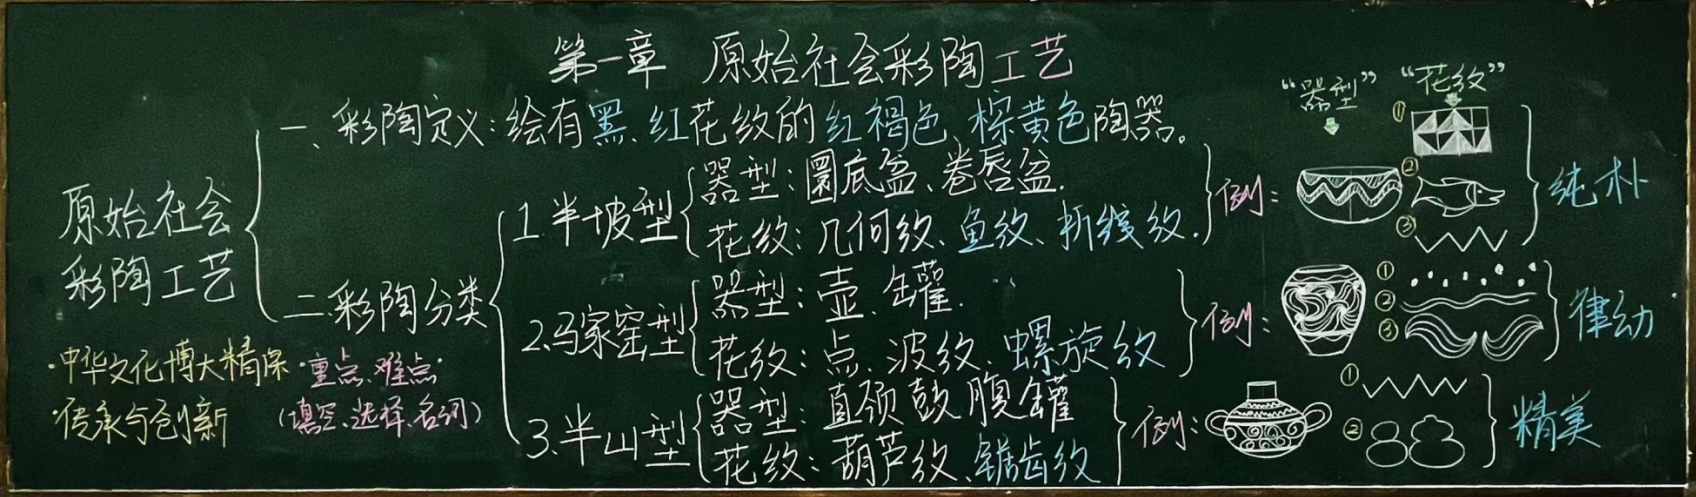 第一章 原始社会彩陶工艺
原始社会
彩陶工艺
一、彩陶定义:绘有黑、红花纹的红褐色、棕黄色陶器。
二.彩陶分类
1.半坡型
器型:圜底盆、卷唇盆.
花纹:几何纹、鱼纹、折线纹.
例:
2.马家窑型
器型:壶、罐.
花纹:点、波纹、螺旋纹
例:
3.半山型
器型:直颈鼓腹罐
花纹:葫芦纹、锯齿纹
例:
“器型” “花纹”
①
②
③
纯朴
①
②
③
律动
①
②
精美
·中华文化博大精深
·传承与创新
·重点、难点·
(填空、选择、名词)